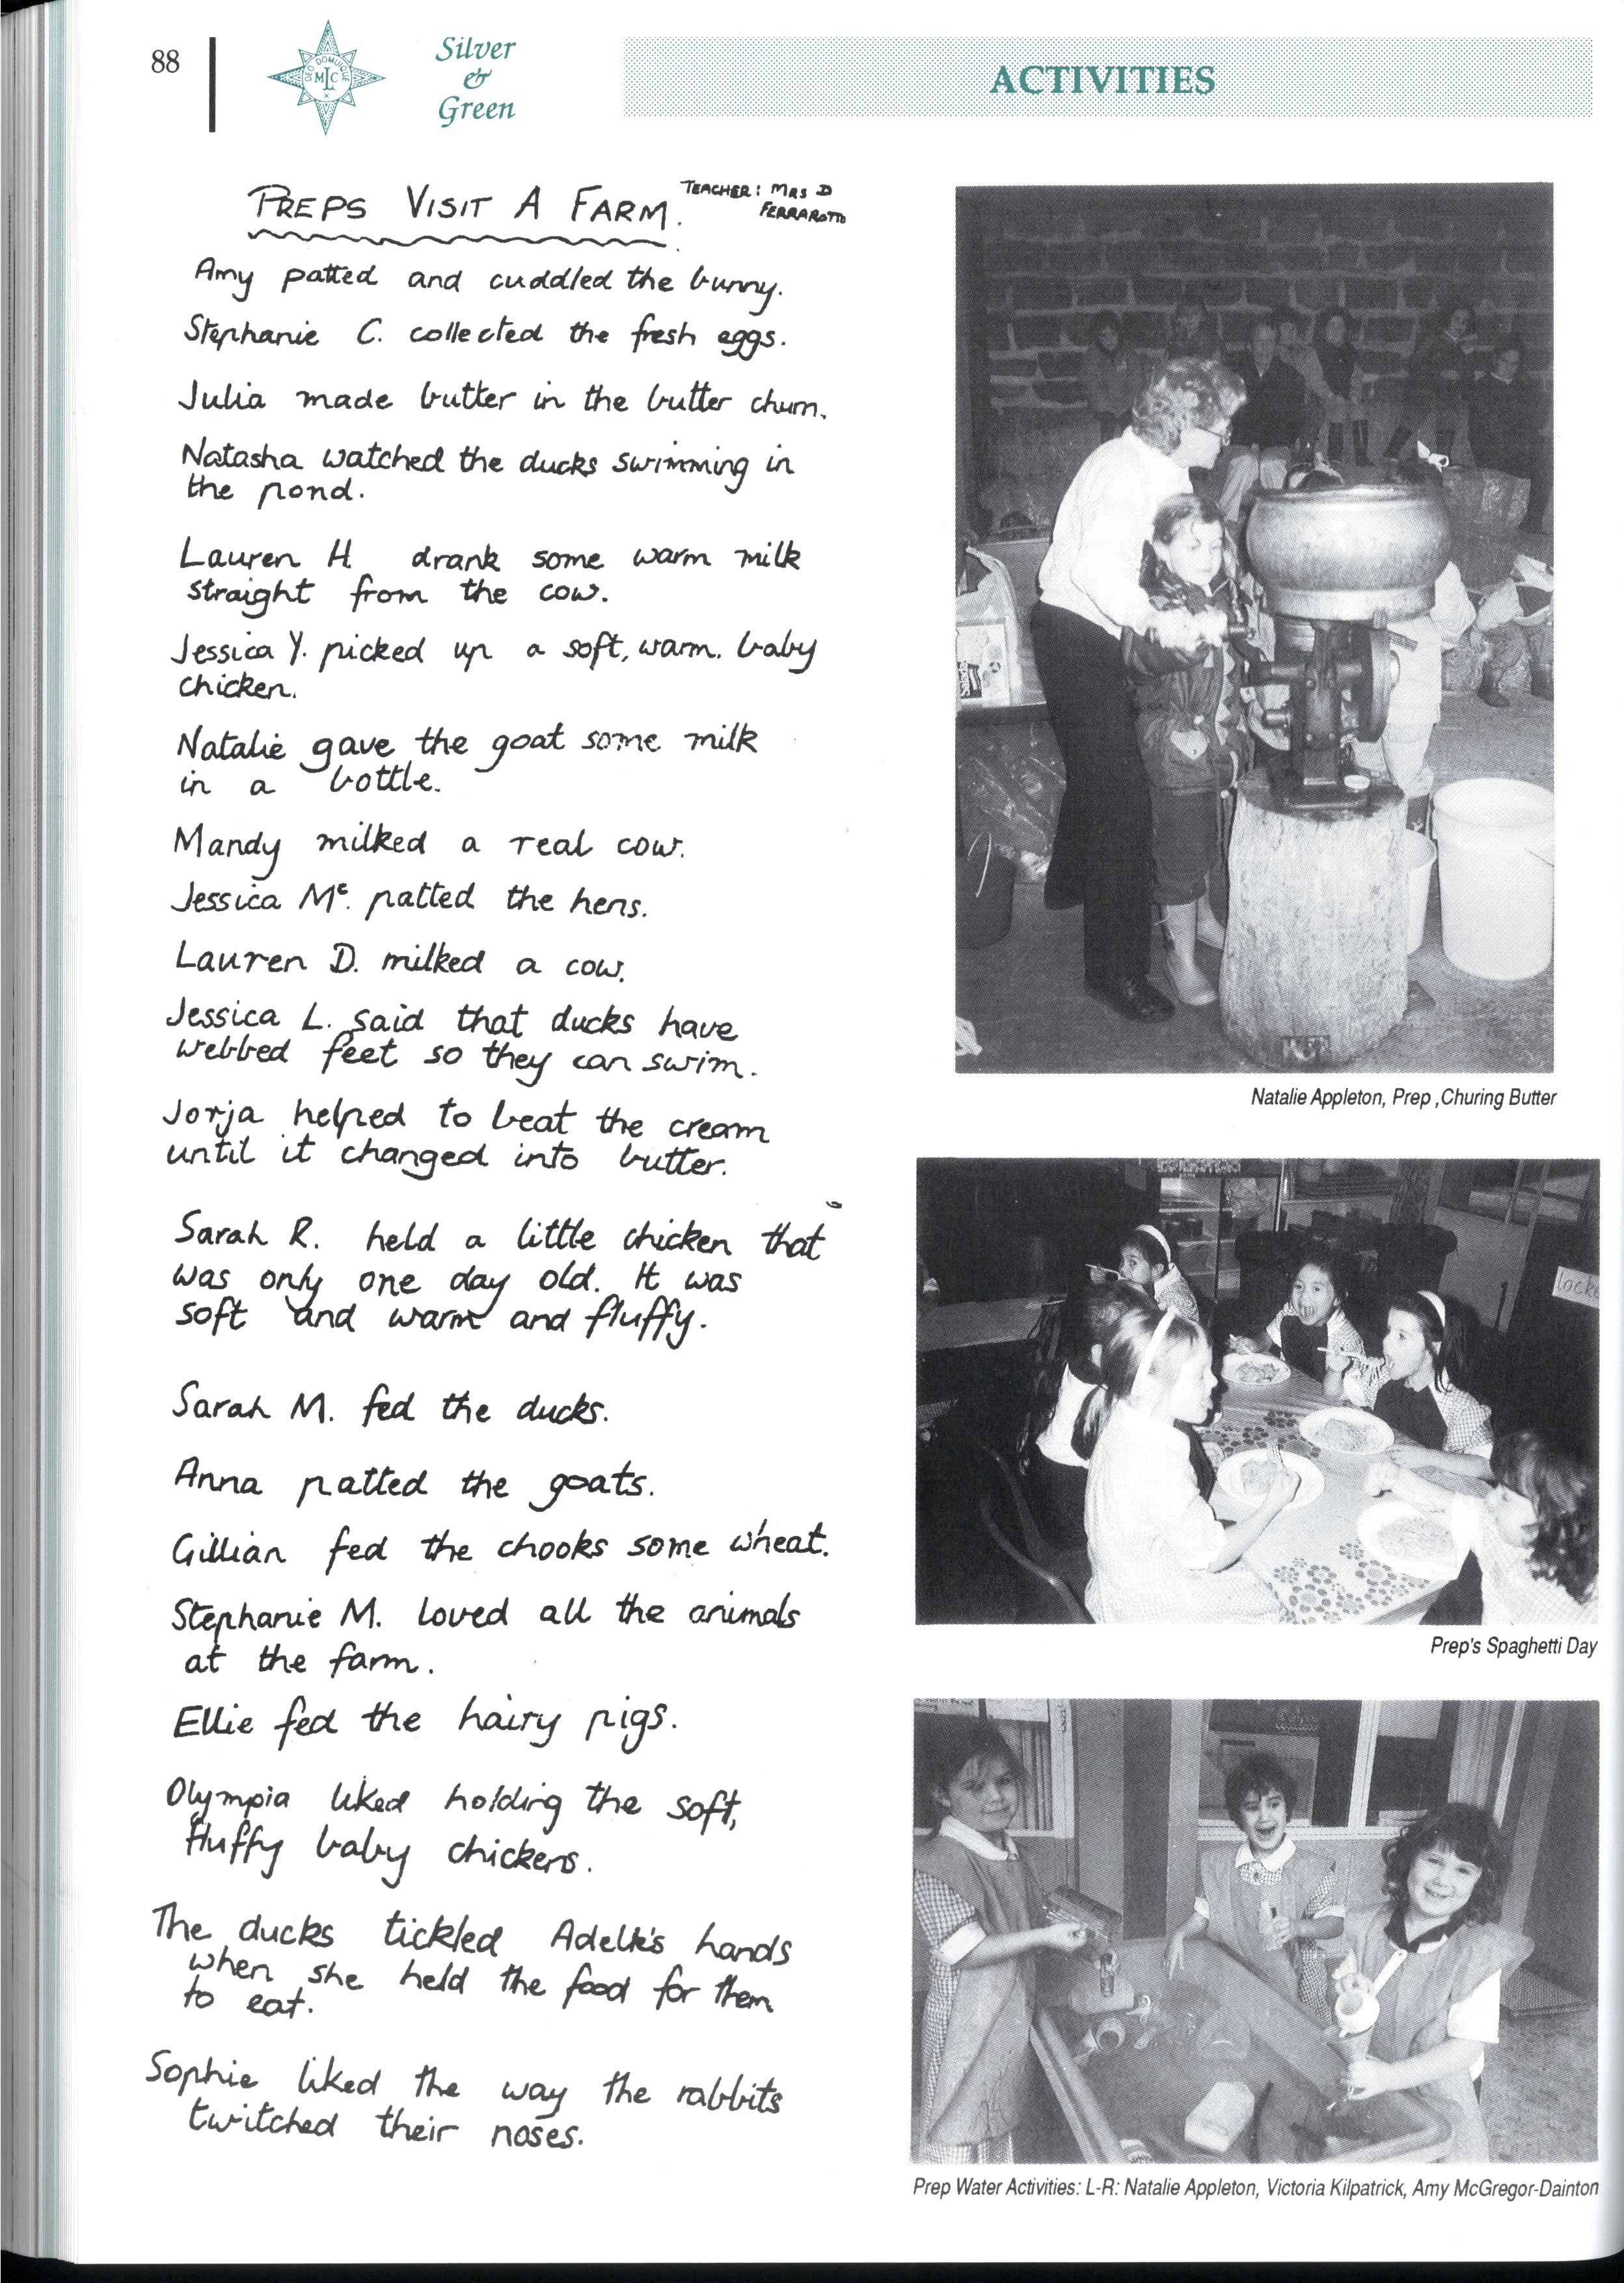 88
DEO DOMUIQUE
MLC
Silver
&
Green
ACTIVITIES
PREPS VISIT A FARM.
TEACHER: MRS D
FERRAROTTO
Amy patted and cuddled the bunny.
Stephanie C. collected the fresh eggs.
Julia made butter in the butter churn.
Natasha watched the ducks swimming in
the pond.
Lauren H drank some warm milk
straight from the cow.
Jessica Y. picked up a soft, warm. baby
chicken.
Natalie gave the goat some milk
in a bottle.
Mandy milked a real cow.
Jessica Mc. patted the hens.
Lauren D. milked a cow.
Jessica L. said that ducks have
webbed feet so they can swim.
Jorja helped to beat the cream
until it changed into butter.
Sarah R. held a little chicken that
was only one day old. It was
soft and warm and fluffy.
Sarah M. fed the ducks.
Anna patted the goats.
Gillian fed the chooks some wheat.
Stephanie M. loved all the animals
at the farm.
Ellie fed the hairy pigs.
Olympia liked holding the soft,
fluffy baby chickens.
The ducks tickled Adelle's hands
when she held the food for them
to eat.
Sophie liked the way the rabbits
twitched their noses.
Natalie Appleton, Prep ,Churing Butter
locke
Prep's Spaghetti Day
Prep Water Activities: L-R: Natalie Appleton, Victoria Kilpatrick, Amy McGregor-Dainton